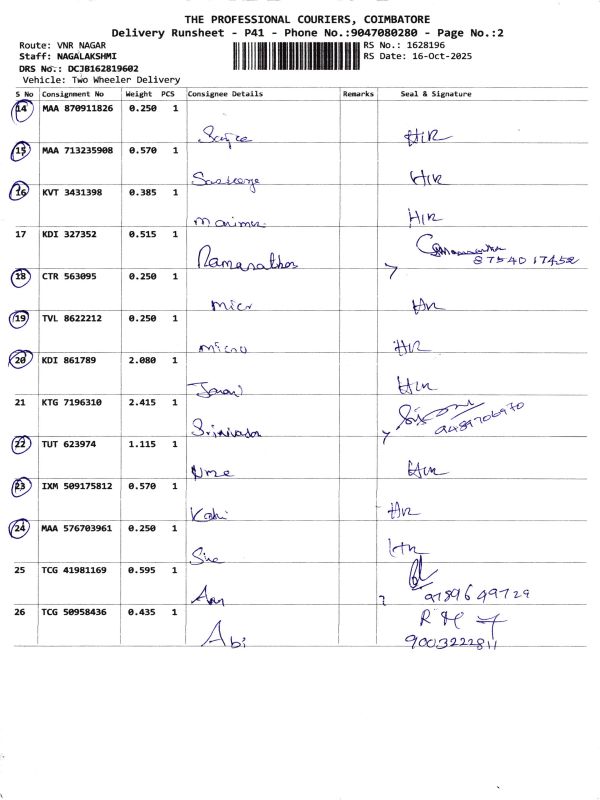 THE PROFESSIONAL COURIERS, COIMBATORE
Delivery Runsheet - P41 - Phone No.:9047080280 - Page No.:2
Route: VNR NAGAR RS No.: 1628196
Staff: NAGALAKSHMI RS Date: 16-Oct-2025
DRS No.: DCJB162819602
Vehicle: Two Wheeler Delivery
S No Consignment No Weight PCS Consignee Details Remarks Seal & Signature
14 MAA 870911826 0.250 1
15 MAA 713235908 0.570 1
16 KVT 3431398 0.385 1
17 KDI 327352 0.515 1
8754017452
18 CTR 563095 0.250 1
micr
19 TVL 8622212 0.250 1
micro
20 KDI 861789 2.080 1
21 KTG 7196310 2.415 1
Srinivasan
9489706970
22 TUT 623974 1.115 1
23 IXM 509175812 0.570 1
24 MAA 576703961 0.250 1
25 TCG 41981169 0.595 1
9789649729
26 TCG 50958436 0.435 1
Abi
9003222811